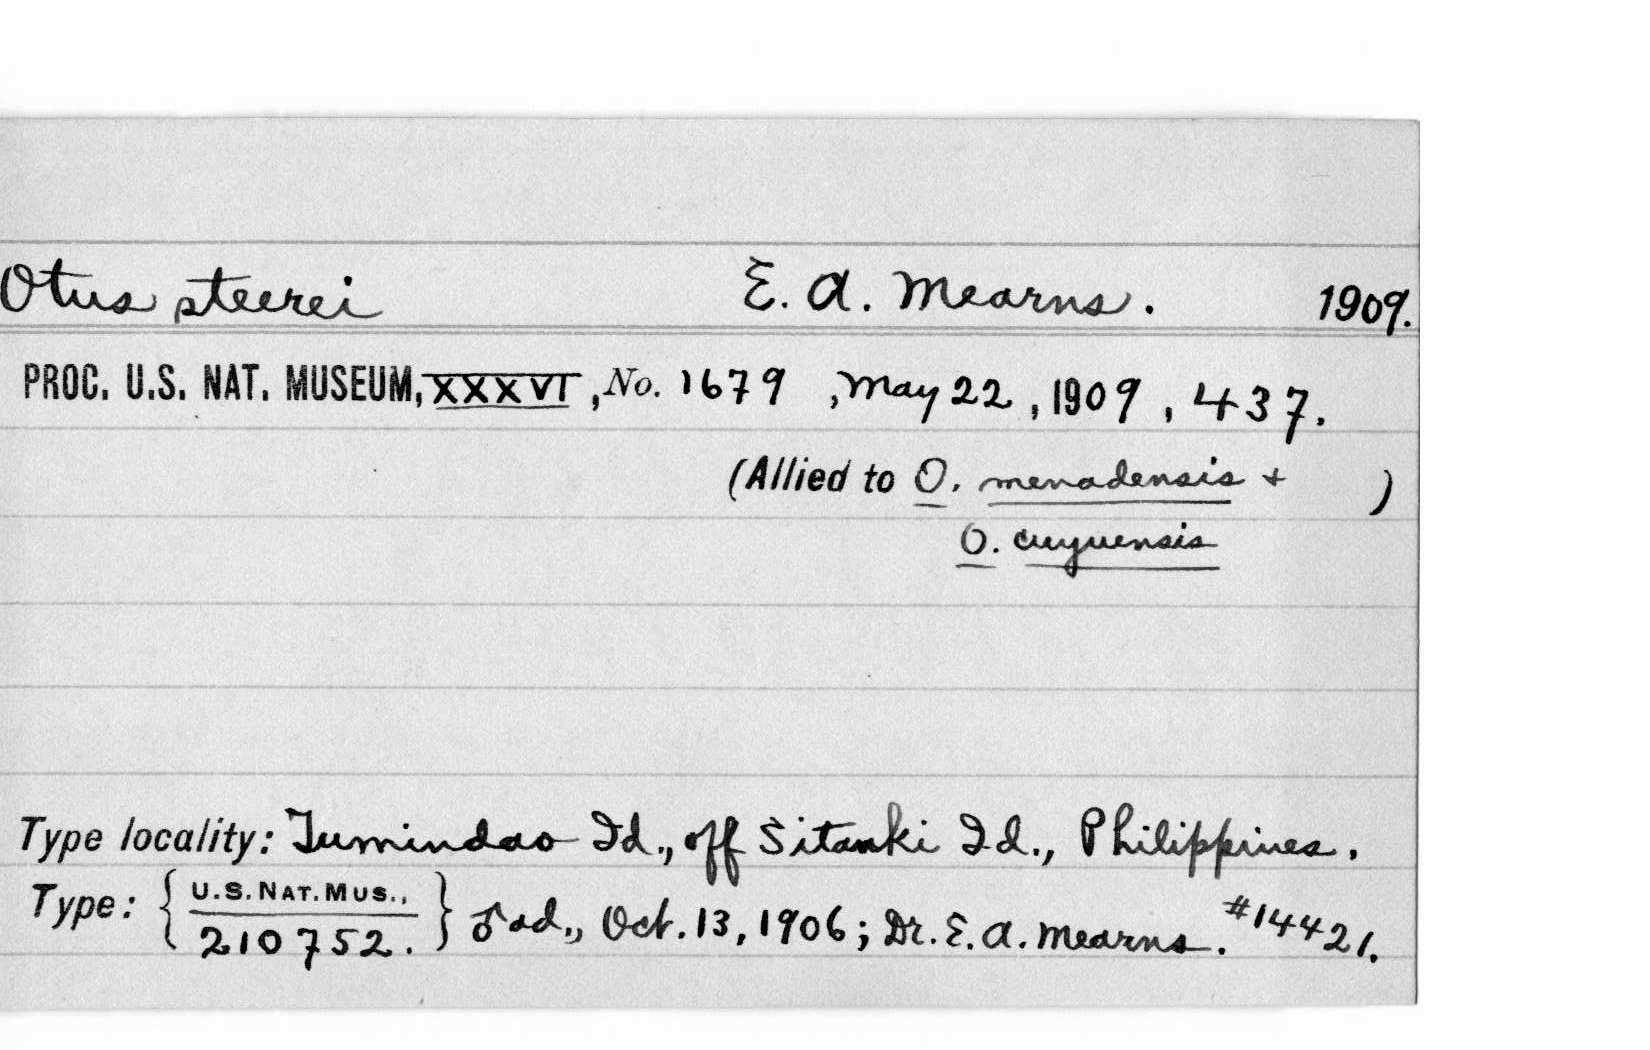 Otus steerei E. A. Mearns. 1909.
PROC. U.S. NAT. MUSEUM, XXXVI, No. 1679, May 22, 1909, 437.
(Allied to O. menadensis + )
O. cuyuensis
Type locality: Tumindao Id., off Sitanki Id., Philippines.
Type: { U.S. NAT. MUS., } ♂ ad., Oct. 13, 1906; Dr. E. A. Mearns. #14421.
210752.